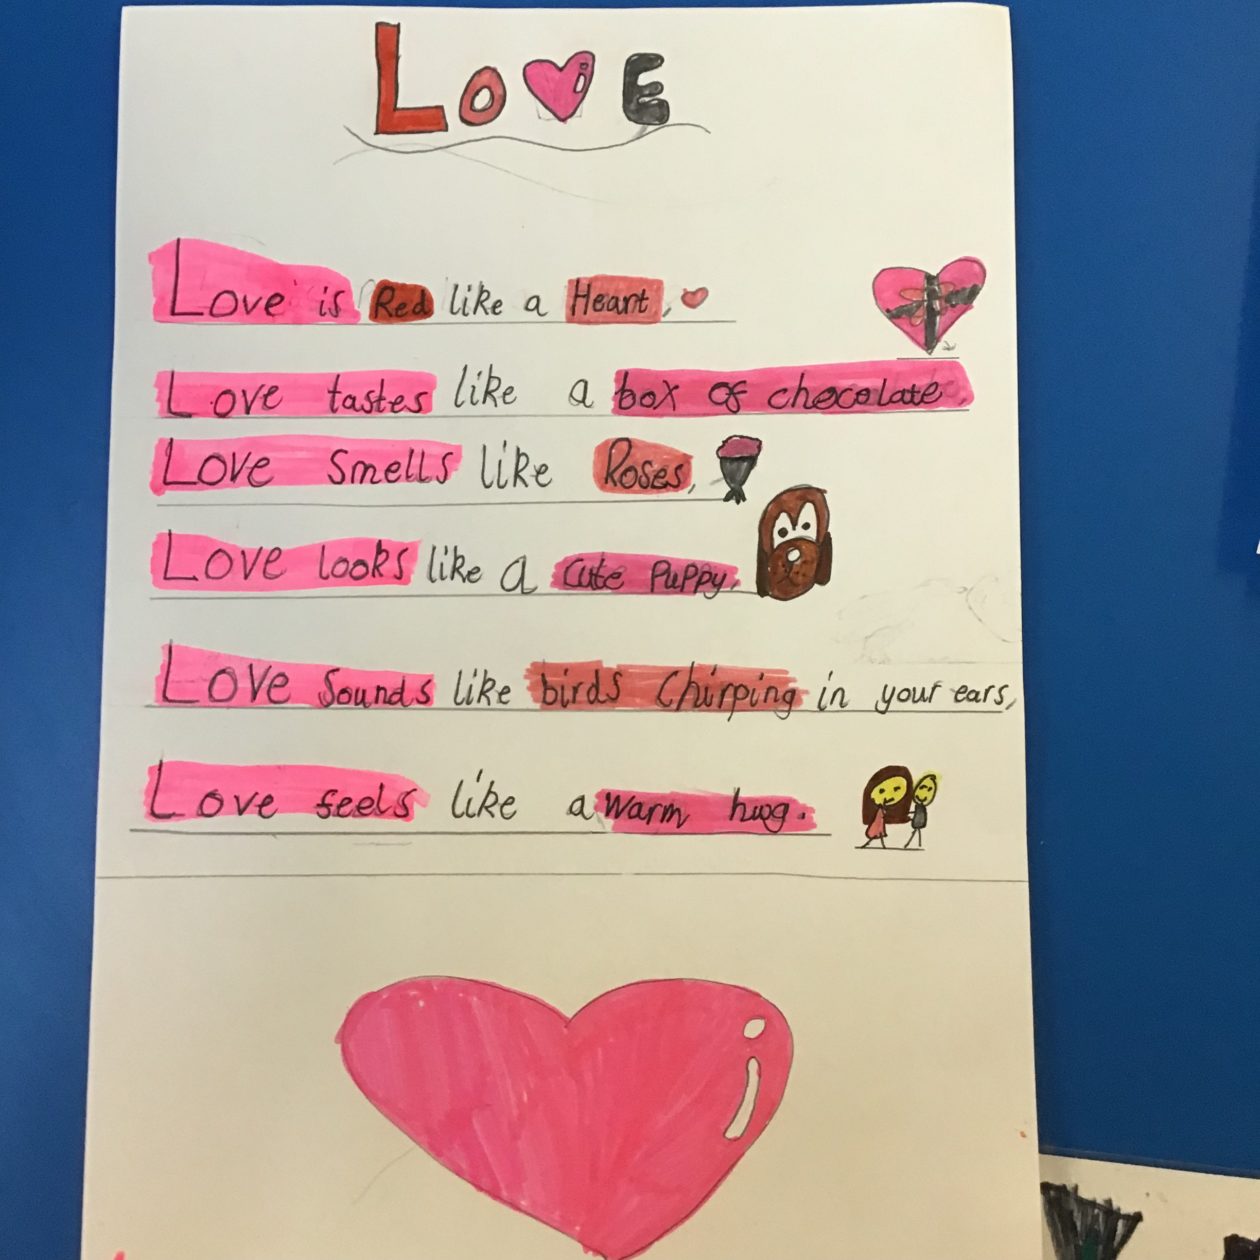 LOVE
Love is Red like a Heart,
Love tastes like a box of chocolate,
Love Smells like Roses,
Love looks like a cute puppy,
Love Sounds like birds Chirping in your ears,
Love feels like a warm hug.